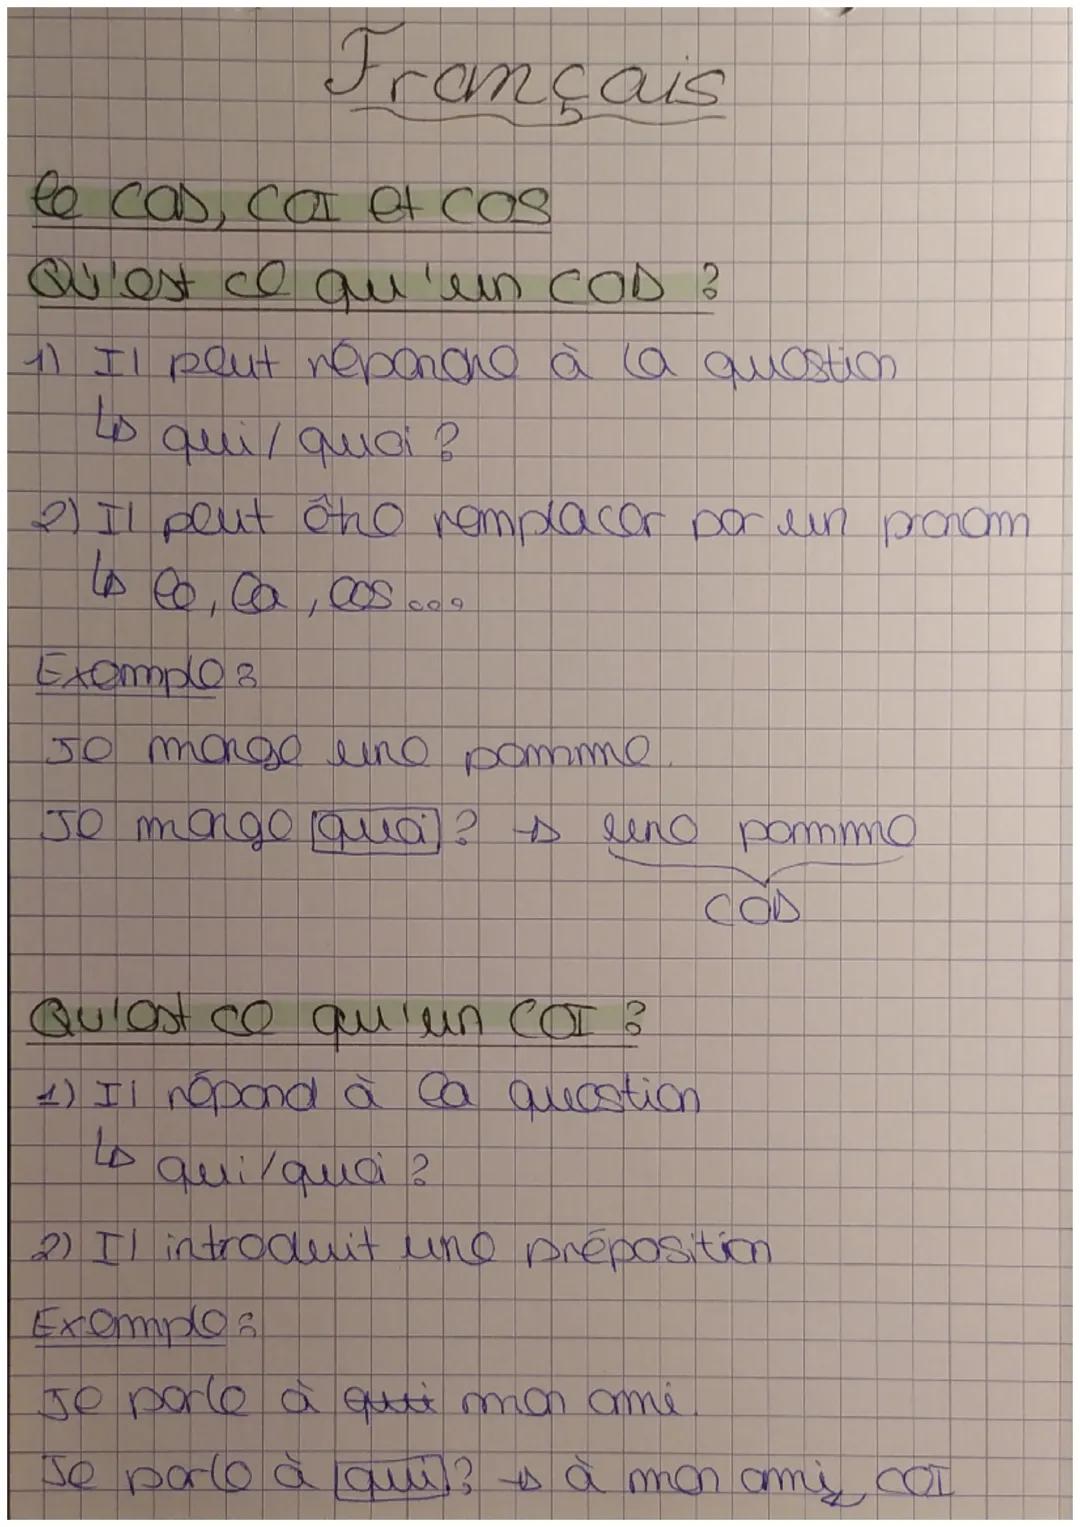 Français
le COD, COI et COS
Qu'est ce qu'un COD ?
1) Il peut répondre à la question
↳ qui/quoi ?
2) Il peut être remplacer par un pronom
↳ le, la, les...
Exemple :
Je mange une pomme.
Je mange quoi ? → une pomme
COD
Qu'est ce qu'un COI ?
1) Il répond à la question
↳ qui/quoi ?
2) Il introduit une préposition
Exemple :
Je parle à qui mon ami.
Je parle à qui ? → à mon ami, COI